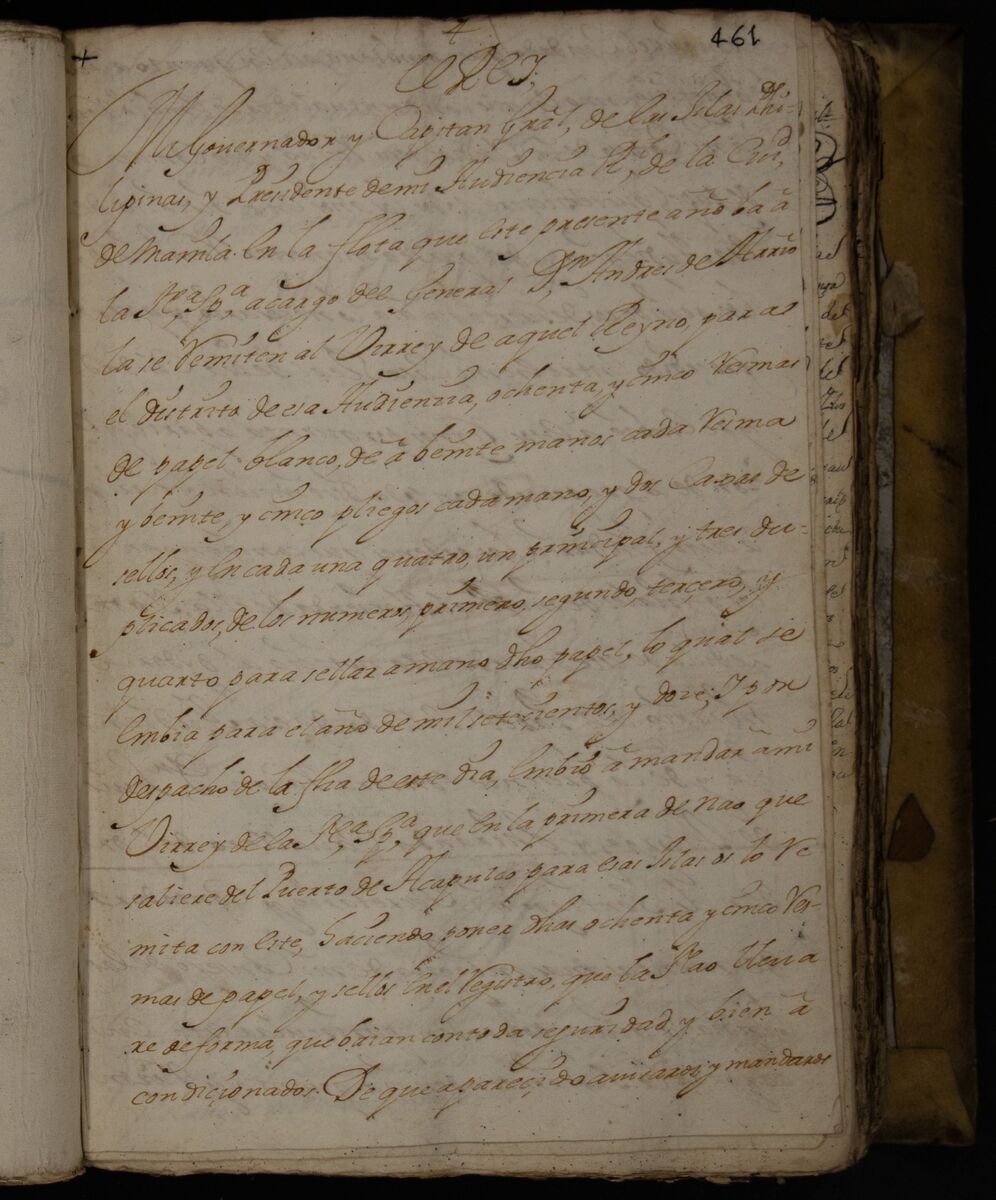 461
el Rey,
Mi Governador y Capitan Gral, de las Islas Phi-
lipinas, y Presidente de mi Audiencia Rl, de la Ciud,
de Manila. En la flota que este presente año ba â
la Nea, Spa, a cargo del General Dn, Andres de Arrio
la se Remiten al Virrey de aquel Reyno, para
el distrito de esa Audiencia, ochenta, y cinco Resmas
de papel blanco, de â beinte manos cada Resma
y beinte, y cinco pliegos cada mano, y dos Caxas de
sellos, y En cada una quatro, un principal, y tres du-
plicados, de los numeros, primero, segundo, terçero, y
quarto para sellar a mano dho papel, lo qual se
Embia para el año de mil setecientos, y doze; Y por
despacho de la fha de este dia, Embio â mandar â mi
Virrey de la Nea, Spa, que En la primera de nao que
saliere del Puerto de Acapulco para esas Islas os lo Re
mita con este, haciendo poner dhas ochenta y cinco Res-
mas de papel, y sellos En el Registro, que la Nao lleva
re de forma, que baian con toda seguridad, y bien â
condiçionados. De que a pareçido avisaros, y mandaros